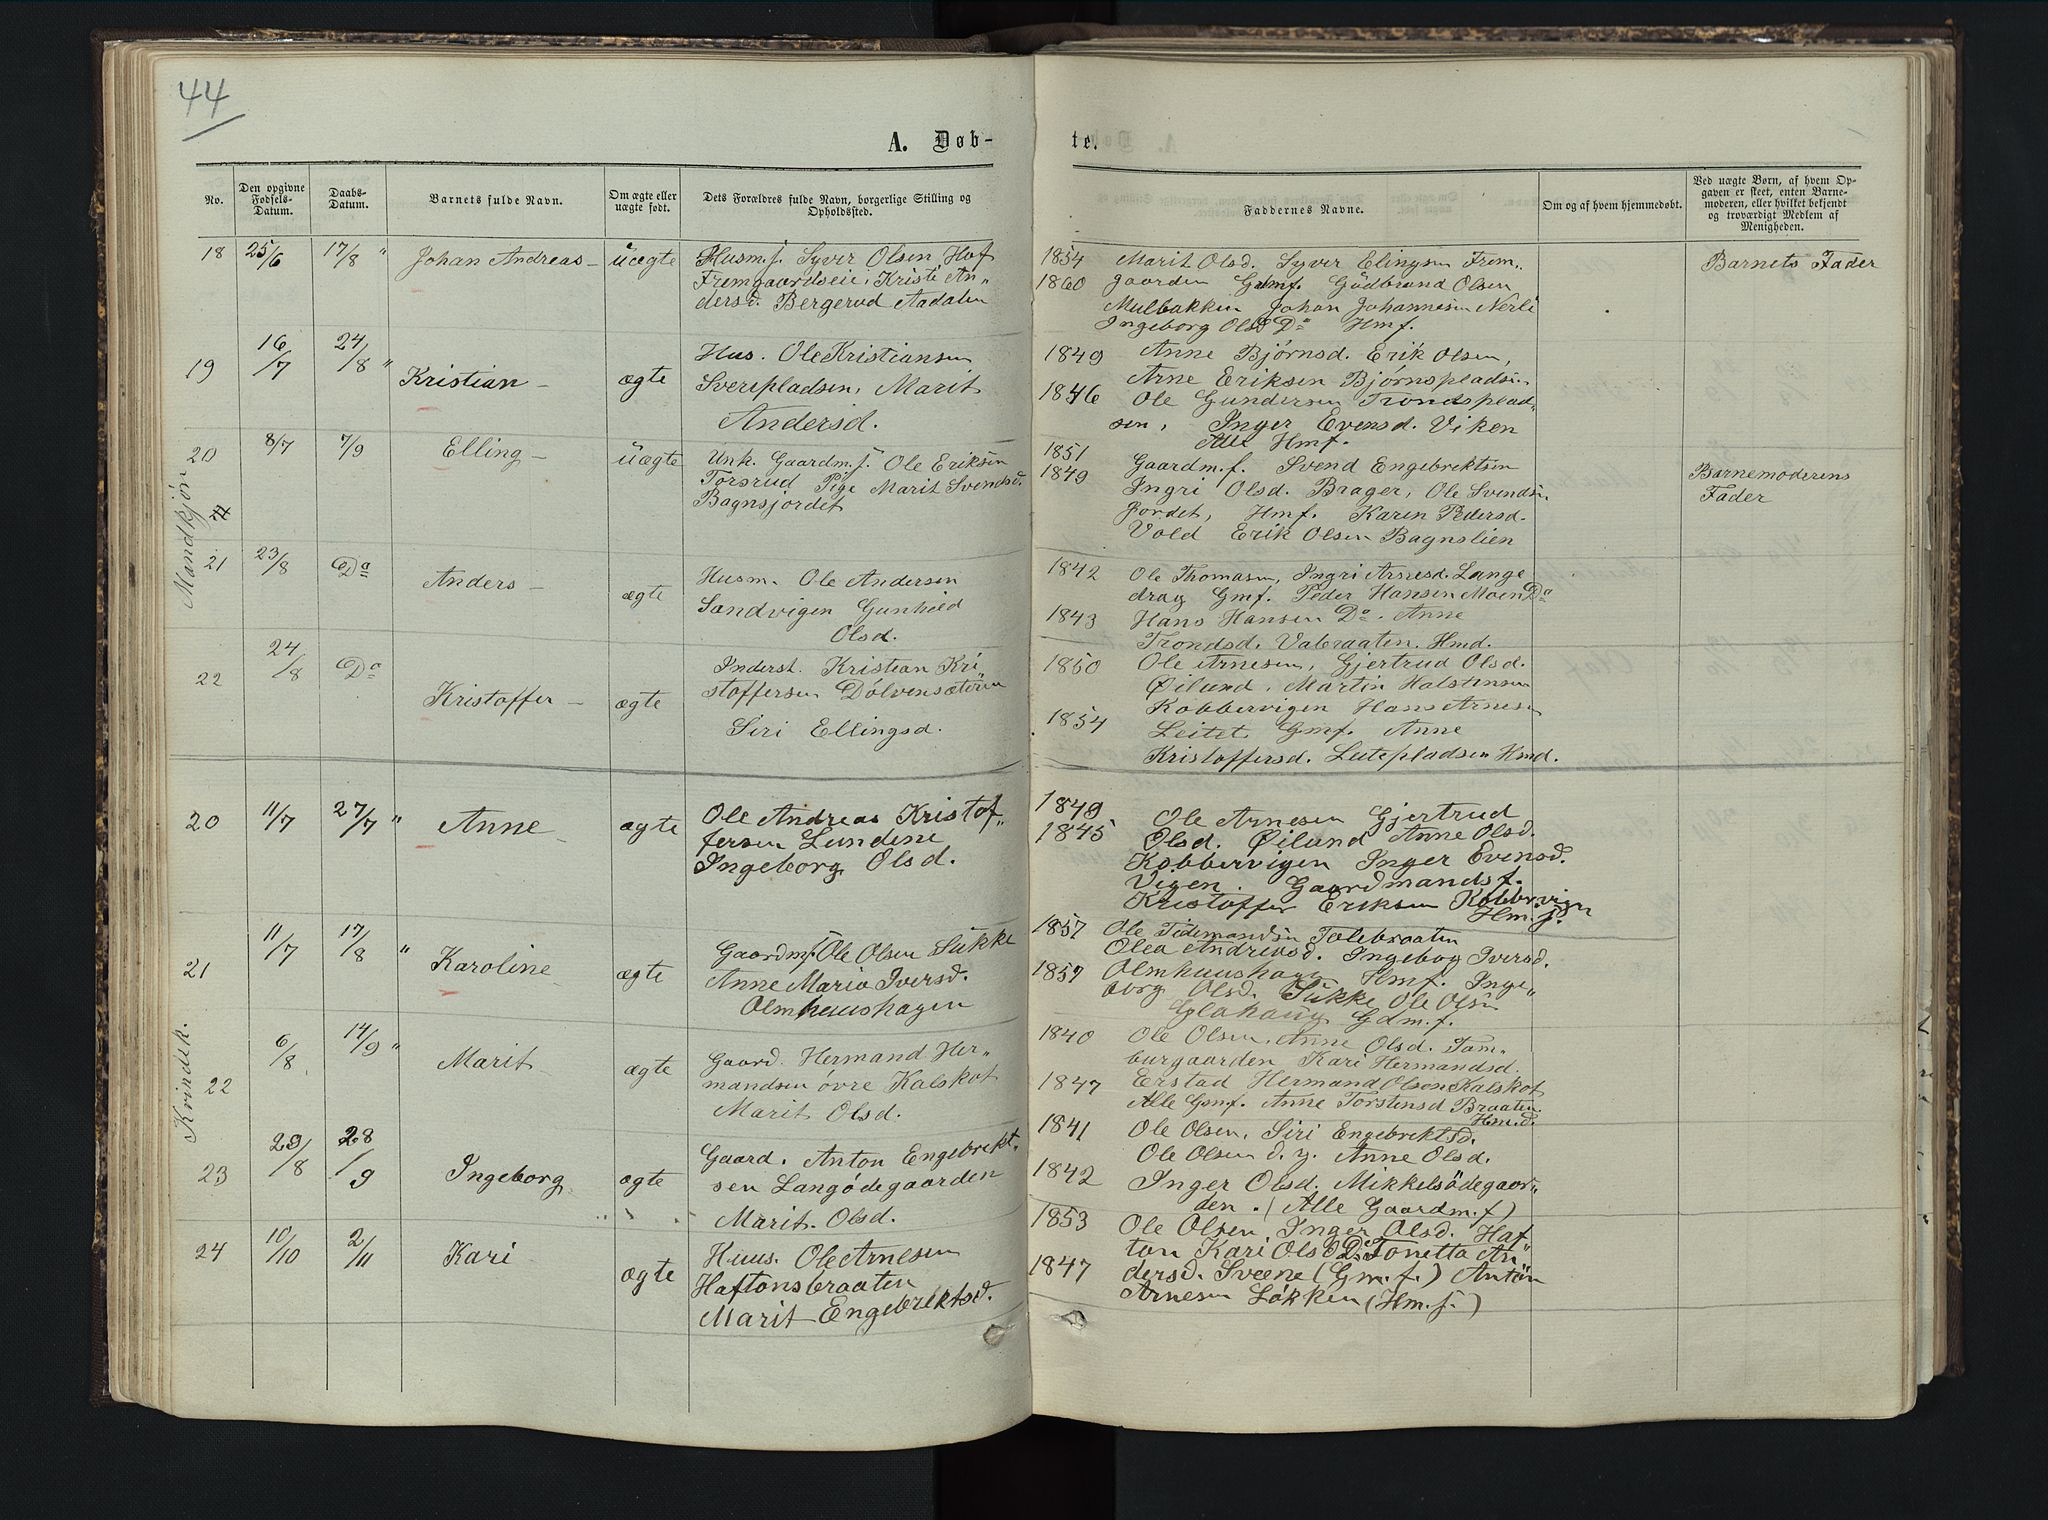 44
A. Døb-
te.
No.
Den opgivne Fødsels-Datum.
Daabs-Datum.
Barnets fulde Navn.
Om ægte eller uægte født.
Dets Forældres fulde Navn, borgerlige Stilling og Opholdssted.
Faddernes Navne.
Om og af hvem hjemmedøbt.
Ved uægte Børn, af hvem Opgaven er skeet, enten Barnemoderen, eller hvilket bekjendt og troværdigt Medlem af Menigheden.
Mandkjøn
18 25/6 17/8 " Johan Andreas – uægte
Husm. f. Syver Olsen Hof
Fremgaardseie, Kristi An„
dersd. Bergerud Aadalen
1854 Marit Olsd. Syver Elingsen Frem„
1860 gaarden Gmf. Gudbrand Olsen
Mulbakken Johan Johannesen Nerli
Ingeborg Olsd Do Hmf.
Barnets Fader
19 16/7 24/8 " Kristian – ægte
Hus. Ole Kristiansen
Svenpladsen, Marit
Andersd.
1849 Anne Bjørnsd. Erik Olsen,
Arne Eriksen Bjørnspladsen
1846 Ole Gundersen Trondsplad„
sen, Inger Evensd. Viken
Alle Hmf.
20 8/7 7/9 Elling – uægte
Unk. Gaardm. f. Ole Eriksen
Torsrud Pige Marit Svendsd.
Bagnsjordet
1851 Gaardm. f. Svend Engebrektsen
1849 Ingri Olsd. Brager, Ole Svends.
Jordet, Hmf. Karen Pedersd.
Vold Erik Olsen Bagnslien
Barnemoderens
Fader
21 23/8 Do Anders – ægte
Husm. Ole Andersen
Sandvigen Gunhild
Olsd.
1842 Ole Thomasen, Ingri Arnesd. Lange
drag Gmf. Peder Hansen Moen Do
1843 Hans Hansen Do. Anne
Trondsd. Valbraaten. Hmd.
22 24/8 Do Kristoffer – ægte
Inderst. Kristian Kri
stoffersen Dølvensæteren
Siri Ellingsd.
1850 Ole Arnesen, Gjertrud Olsd.
Øilund. Martin Halstensen
Kobbervigen Hans Arnesen
1854 Leitet. Gmf. Anne
Kristoffersd. Leitepladsen Hmd.
Kvindek.
20 11/7 27/7 " Anne – ægte
Ole Andreas Kristof„
fersen Lundene
Ingeborg Olsd.
1849 Ole Arnesen Gjertrud
1845 Olsd. Øilund Anne Olsd.
Kobbervigen Inger Evensd.
Vigen. Gaardmandsf.
Kristoffer Eriksen Kobbervigen
Hm. f.
21 11/7 17/8 " Karoline ægte
Gaardmf Ole Olsen Sukke
Anne Maria Iversd.
Olmhuushagen
1857 Ole Tidemandsen Tolebraaten
Olea Andreasd. Ingeborg Iversd.
1857 Olmhuushagen Hmf. Inge„
borg Olsd. Sukke Ole Olsen
Gdm. f.
22 6/8 14/9 " Marit ægte
Gaard. Hermand Her„
mandsen øvre Kalskot
Marit Olsd.
1840 Ole Olsen, Anne Olsd. Tam„
burgaarden Kari Hermandsd.
1847 Erstad Hermand Olsen Kalskot
Alle Gmf. Anne Torstensd Braaten.
Hm.d.
23 29/8 28/9 Ingeborg ægte
Gaard. Anton Engebrekt„
sen Langødegaarden
Marit. Olsd.
1841 Ole Olsen, Siri Engebrektsd.
Ole Olsen d. y. Anne Olsd.
1842 Inger Olsd. Mikkelsødegaar„
den. (Alle Gaardm. f)
24 10/10 2/11 Kari ægte
Huus. Ole Arnesen
Haftonsbraaten
Marit Engebrektsd.
1853 Ole Olsen, Inger Olsd. Haf„
ton Kari Olsd Do Tonetta An
1847 dersd. Sveene (Gm. f.) Anton
Arnesen Løkken (Hm. f.)